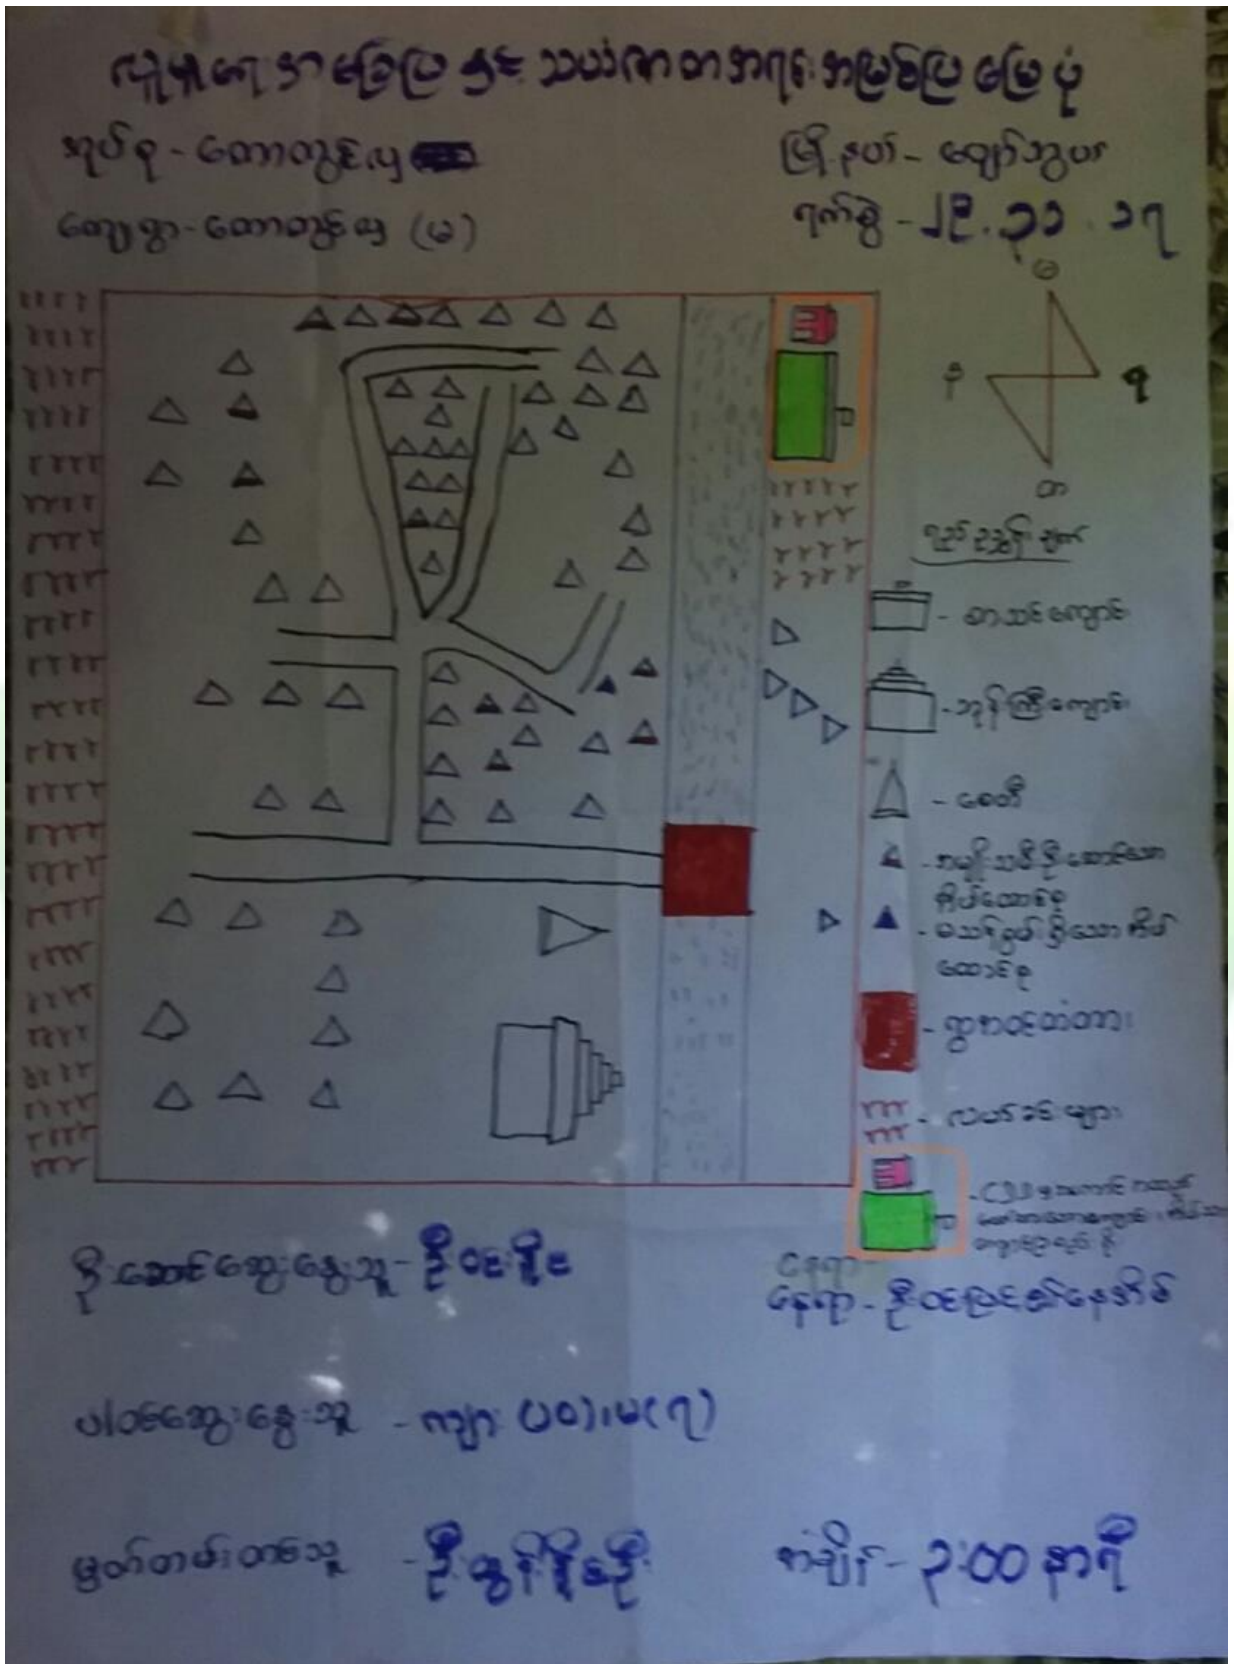 လူမှုရေးအခြေပြနှင့် သယံဇာတအရင်းအမြစ်ပြမြေပုံ
အုပ်စု - တောတွင်းလှ
မြို့နယ် - ကျော်
ကျေးရွာ - တောတွင်းလှ (မ)
ရက်စွဲ - ၂၉.၃၁.၁၇
မ
န
ရ
တ
ရည်ညွှန်းချက်
- စာသင်ကျောင်း
- ဘုန်းကြီးကျောင်း
- စေတီ
- အမျိုးသမီးဦးဆောင်သော
အိမ်ထောင်စု
- မသန်စွမ်းရှိသော အိမ်
ထောင်စု
- ရွာအဝင်တံတား
- လယ်ခင်းများ
- CDD မှ
ဦးဆောင်ဆွေးနွေးသူ - ဦးဝင်းနိုင်
နေရာ
နေရာ - ဦးဝင်းမြင့်၏နေအိမ်
ပါဝင်ဆွေးနွေးသူ - ကျား (၂၀)၊ မ (၇)
မှတ်တမ်းတင်သူ - ဦးထွန်း
အချိန် - ၃:၀၀ နာရီ